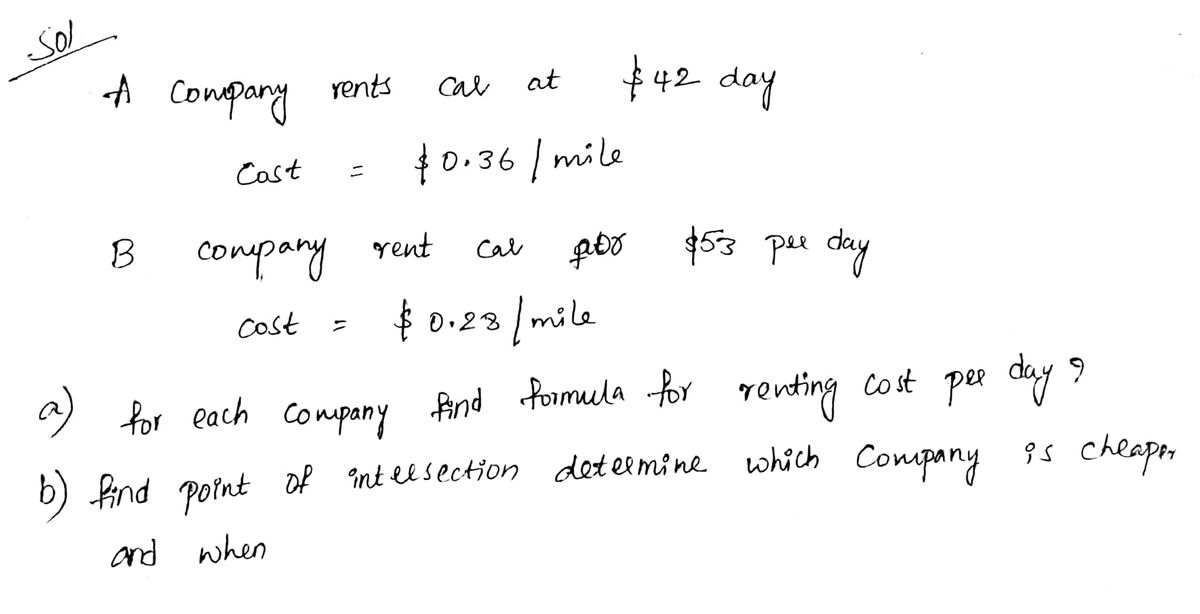 Sol
A Company rents car at $42 day
Cost = $0.36 / mile
B company rent car for $53 per day
cost = $0.28 / mile
a) for each company find formula for renting cost per day?
b) find point of intersection determine which Company is cheaper
and when